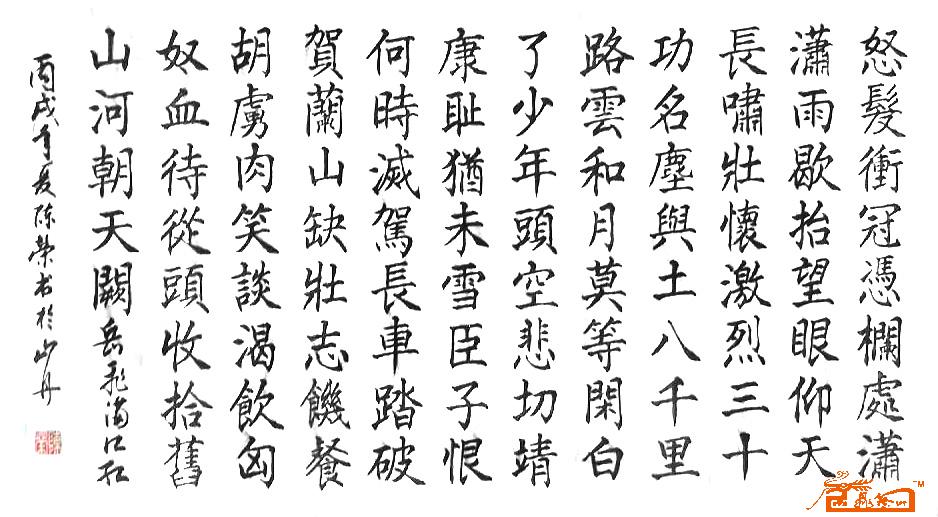 怒髮衝冠憑欄處瀟
瀟雨歇抬望眼仰天
長嘯壯懷激烈三十
功名塵與土八千里
路雲和月莫等閑白
了少年頭空悲切靖
康耻猶未雪臣子恨
何時滅駕長車踏破
賀蘭山缺壯志饑餐
胡虜肉笑談渴飲匈
奴血待從頭收拾舊
山河朝天闕 岳飛滿江紅
丙戌年夏陈榮书於山丹
TM